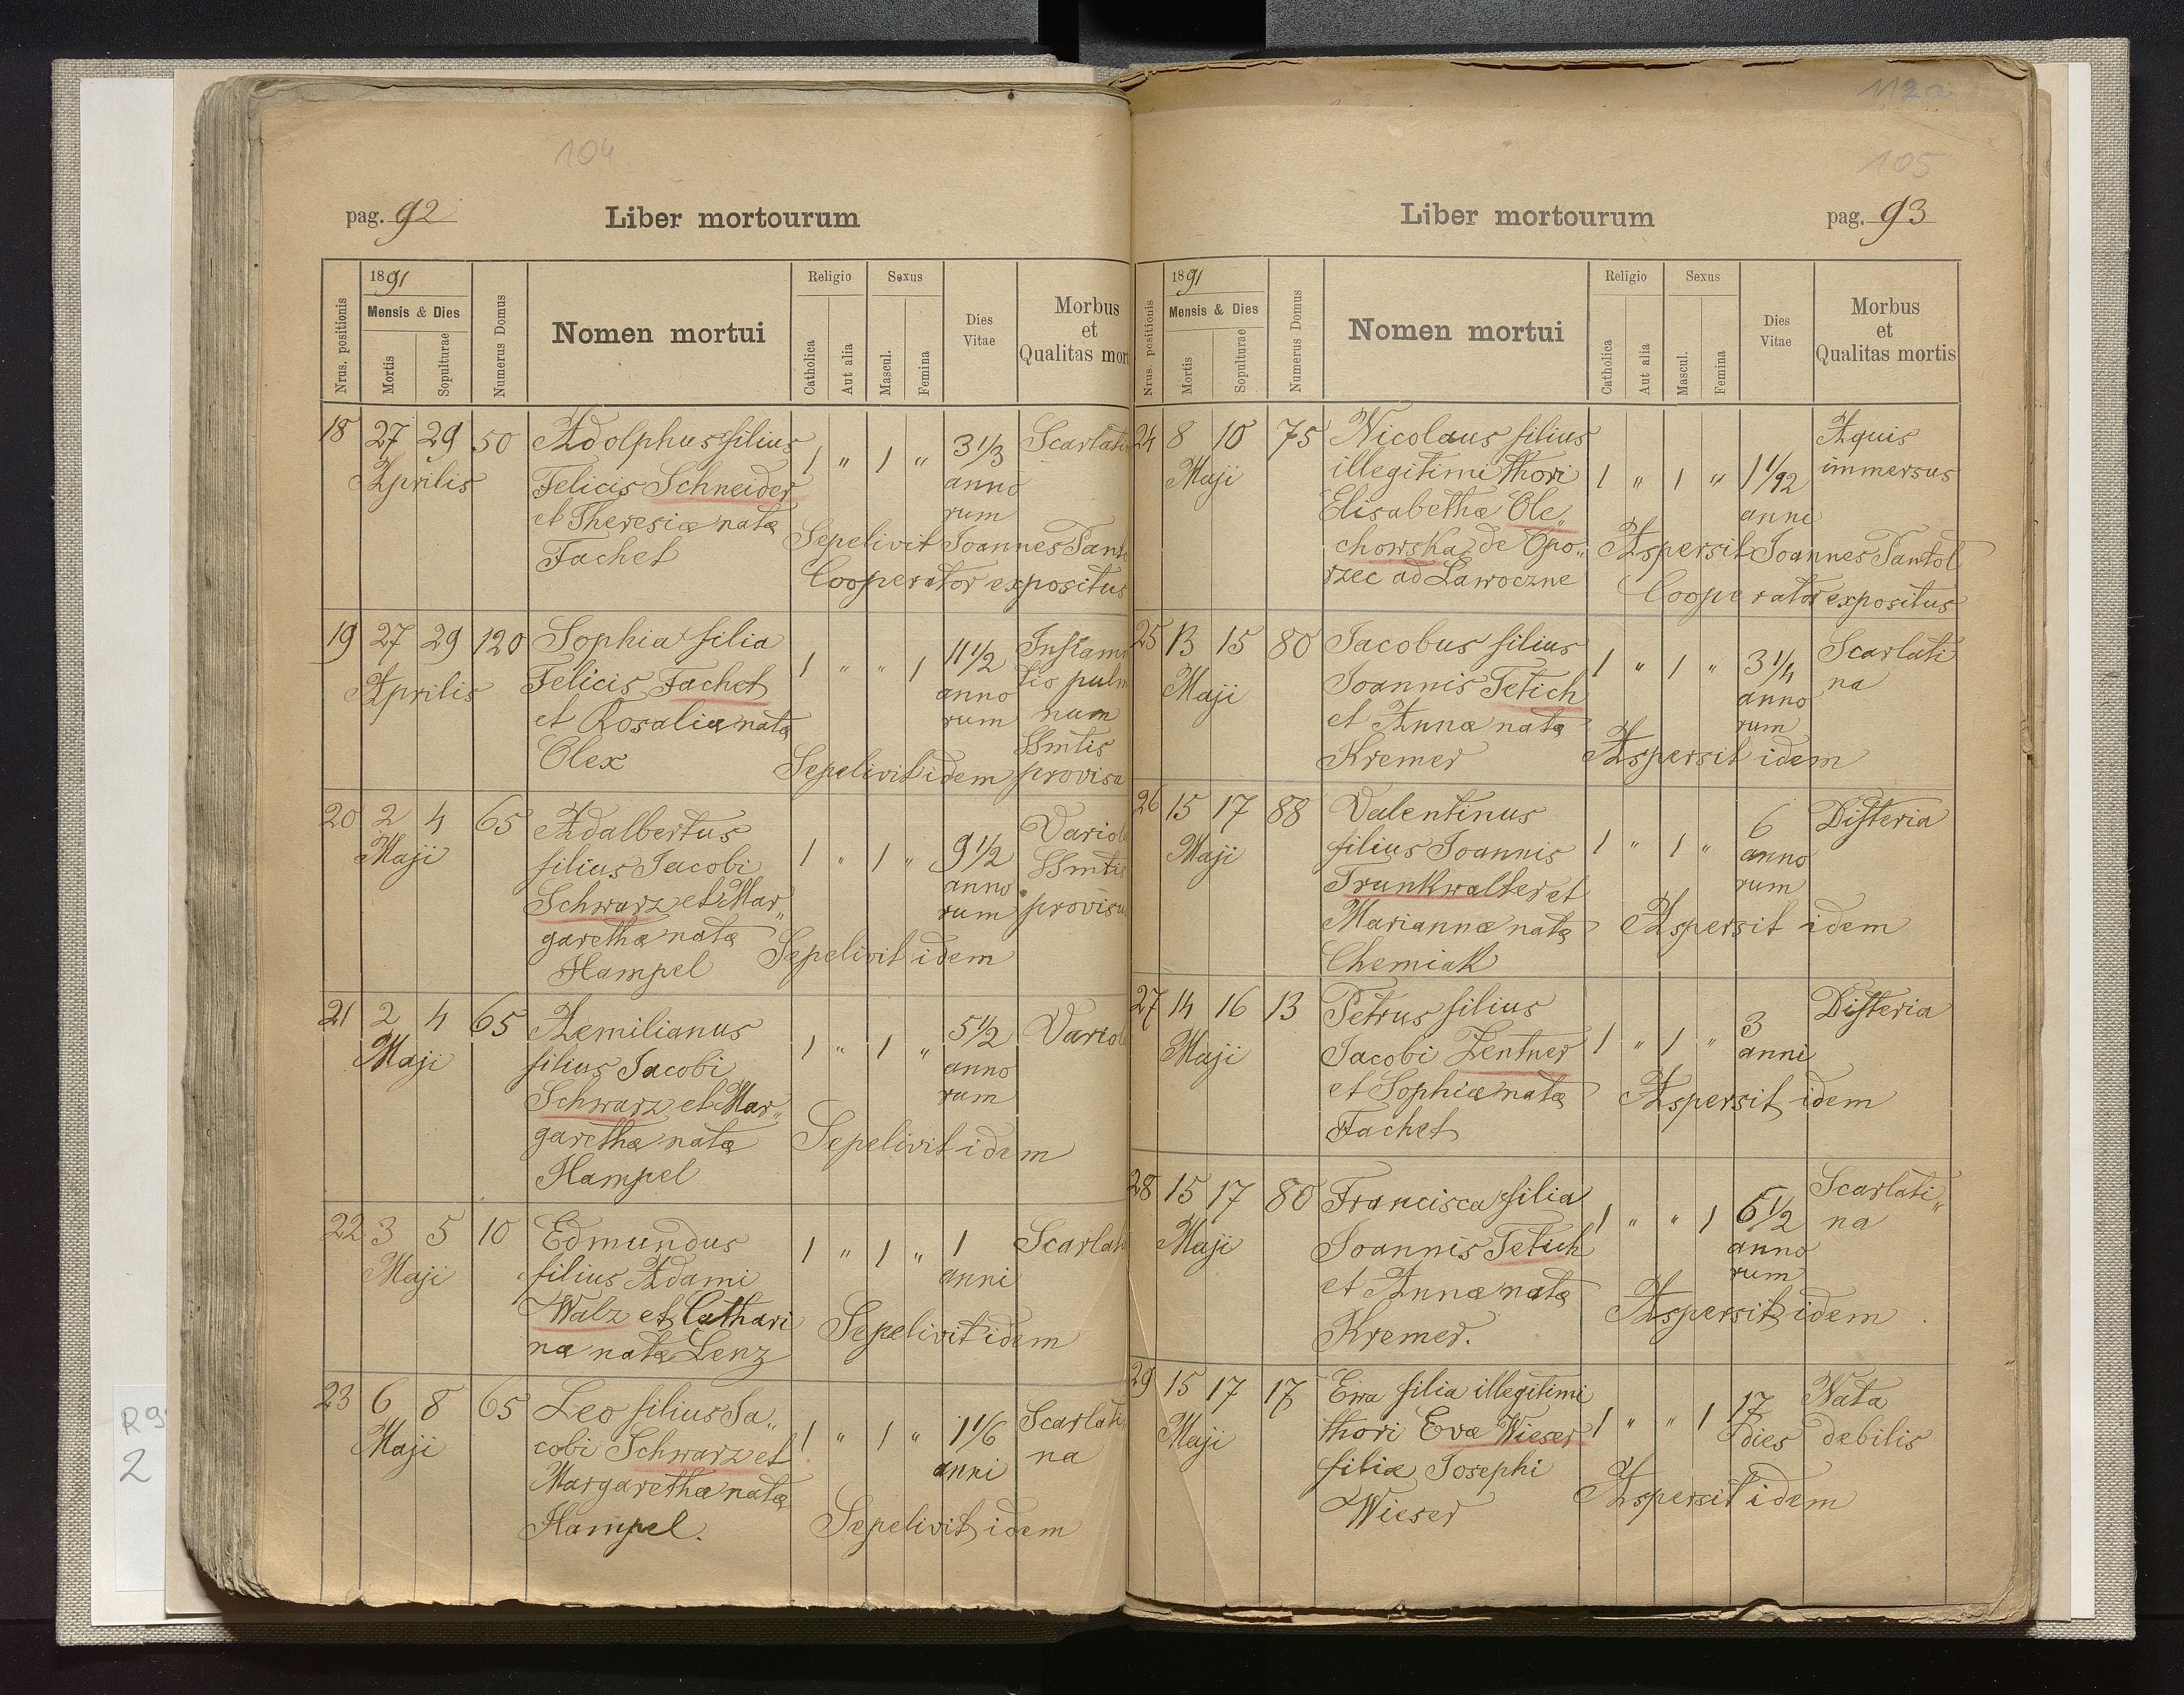 104
pag. 92
Liber mortourum
Nrus. positionis
1891
Mensis & Dies
Mortis
Sopulturae
Numerus Domus
Nomen mortui
Religio
Catholica
Aut alia
Sexus
Mascul.
Femina
Dies
Vitae
Morbus
et
Qualitas mor
18 27 29 50 Adolphus filius 1 " 1 " 3 1/3 Scarlati
Aprilis Felicis Schneider anno
et Theresiæ natæ rum
Fachet Sepelivit Joannes Pant
Cooperator expositus
19 27 29 120 Sophia filia 1 " " 1 11 1/2 Inflam
Aprilis Felicis Fachet anno tio pulm
et Rosaliæ natæ rum num
Olex SSmtis
Sepelivit idem provisa
20 2 4 65 Adalbertus 1 " 1 " 9 1/2 Variol
Maji filius Jacobi anno SSmtis
Schwarz et Mar„ rum provisu
garethæ natæ
Hampel Sepelivit idem
21 2 4 65 Aemilianus 1 " 1 " 5 1/2 Variol
Maji filius Jacobi anno
Schwarz et Mar„ rum
garethæ natæ Sepelivit idem
Hampel
22 3 5 10 Edmundus 1 " 1 " 1 Scarlat
Maji filius Adami anni
Walz et Cathari
næ natæ Lenz Sepelivit idem
23 6 8 65 Leo filius Ja„ 1 " 1 " 1 1/6 Scarlati
Maji cobi Schwarz et anni na
Margarethæ natæ
Hampel. Sepelivit idem
R9
2
105
Liber mortourum
pag. 93
Nrus. positionis
1891
Mensis & Dies
Mortis
Sopulturae
Numerus Domus
Nomen mortui
Religio
Catholica
Aut alia
Sexus
Mascul.
Femina
Dies
Vitae
Morbus
et
Qualitas mortis
24 8 10 75 Nicolaus filius 1 " 1 " 1 1/92 Aquis
Maji illegitimi thori anni immersus
Elisabethæ Ole„
chowska de Opo„ Aspersit Joannes Pantol
rzec ad Lawoczne Cooperator expositus
25 13 15 80 Jacobus filius 1 " 1 " 3 1/4 Scarlati
Maji Joannis Tetich anno na
et Annæ natæ rum
Kremer Aspersit idem
26 15 17 88 Valentinus 1 " 1 " 6 Difteria
Maji filius Joannis anno
Trunkwalter et rum
Mariannæ natæ Aspersit idem
Chemiak
27 14 16 13 Petrus filius 1 " 1 " 3 Difteria
Maji Jacobi Zentner anni
et Sophiæ natæ Aspersit idem
Fachet
28 15 17 80 Francisca filia 1 " " 1 6 1/2 Scarlati„
Maji Joannis Tetich anno na
et Annæ natæ rum
Kremer. Aspersit idem
29 15 17 17 Ewa filia illegitimi 1 " " 1 17 Nata
Maji thori Evæ Wieser dies debilis
filiæ Josephi
Wieser Aspersit idem